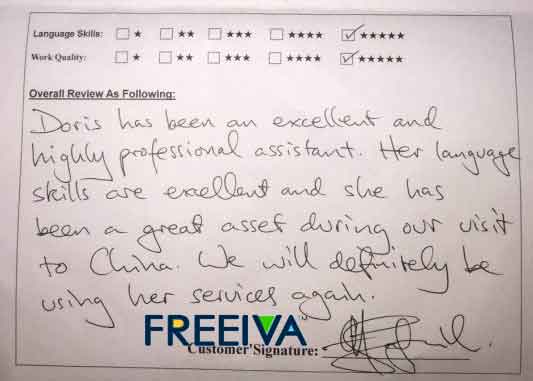 Language Skills: ☐ ★ ☐ ★★ ☐ ★★★ ☐ ★★★★ ☑ ★★★★★
Work Quality: ☐ ★ ☐ ★★ ☐ ★★★ ☐ ★★★★ ☑ ★★★★★
Overall Review As Following:
Doris has been an excellent and
highly professional assistant. Her language
skills are excellent and she has
been a great asset during our visit
to China. We will definitely be
using her services again.
FREEIVA
Customer'Signature: